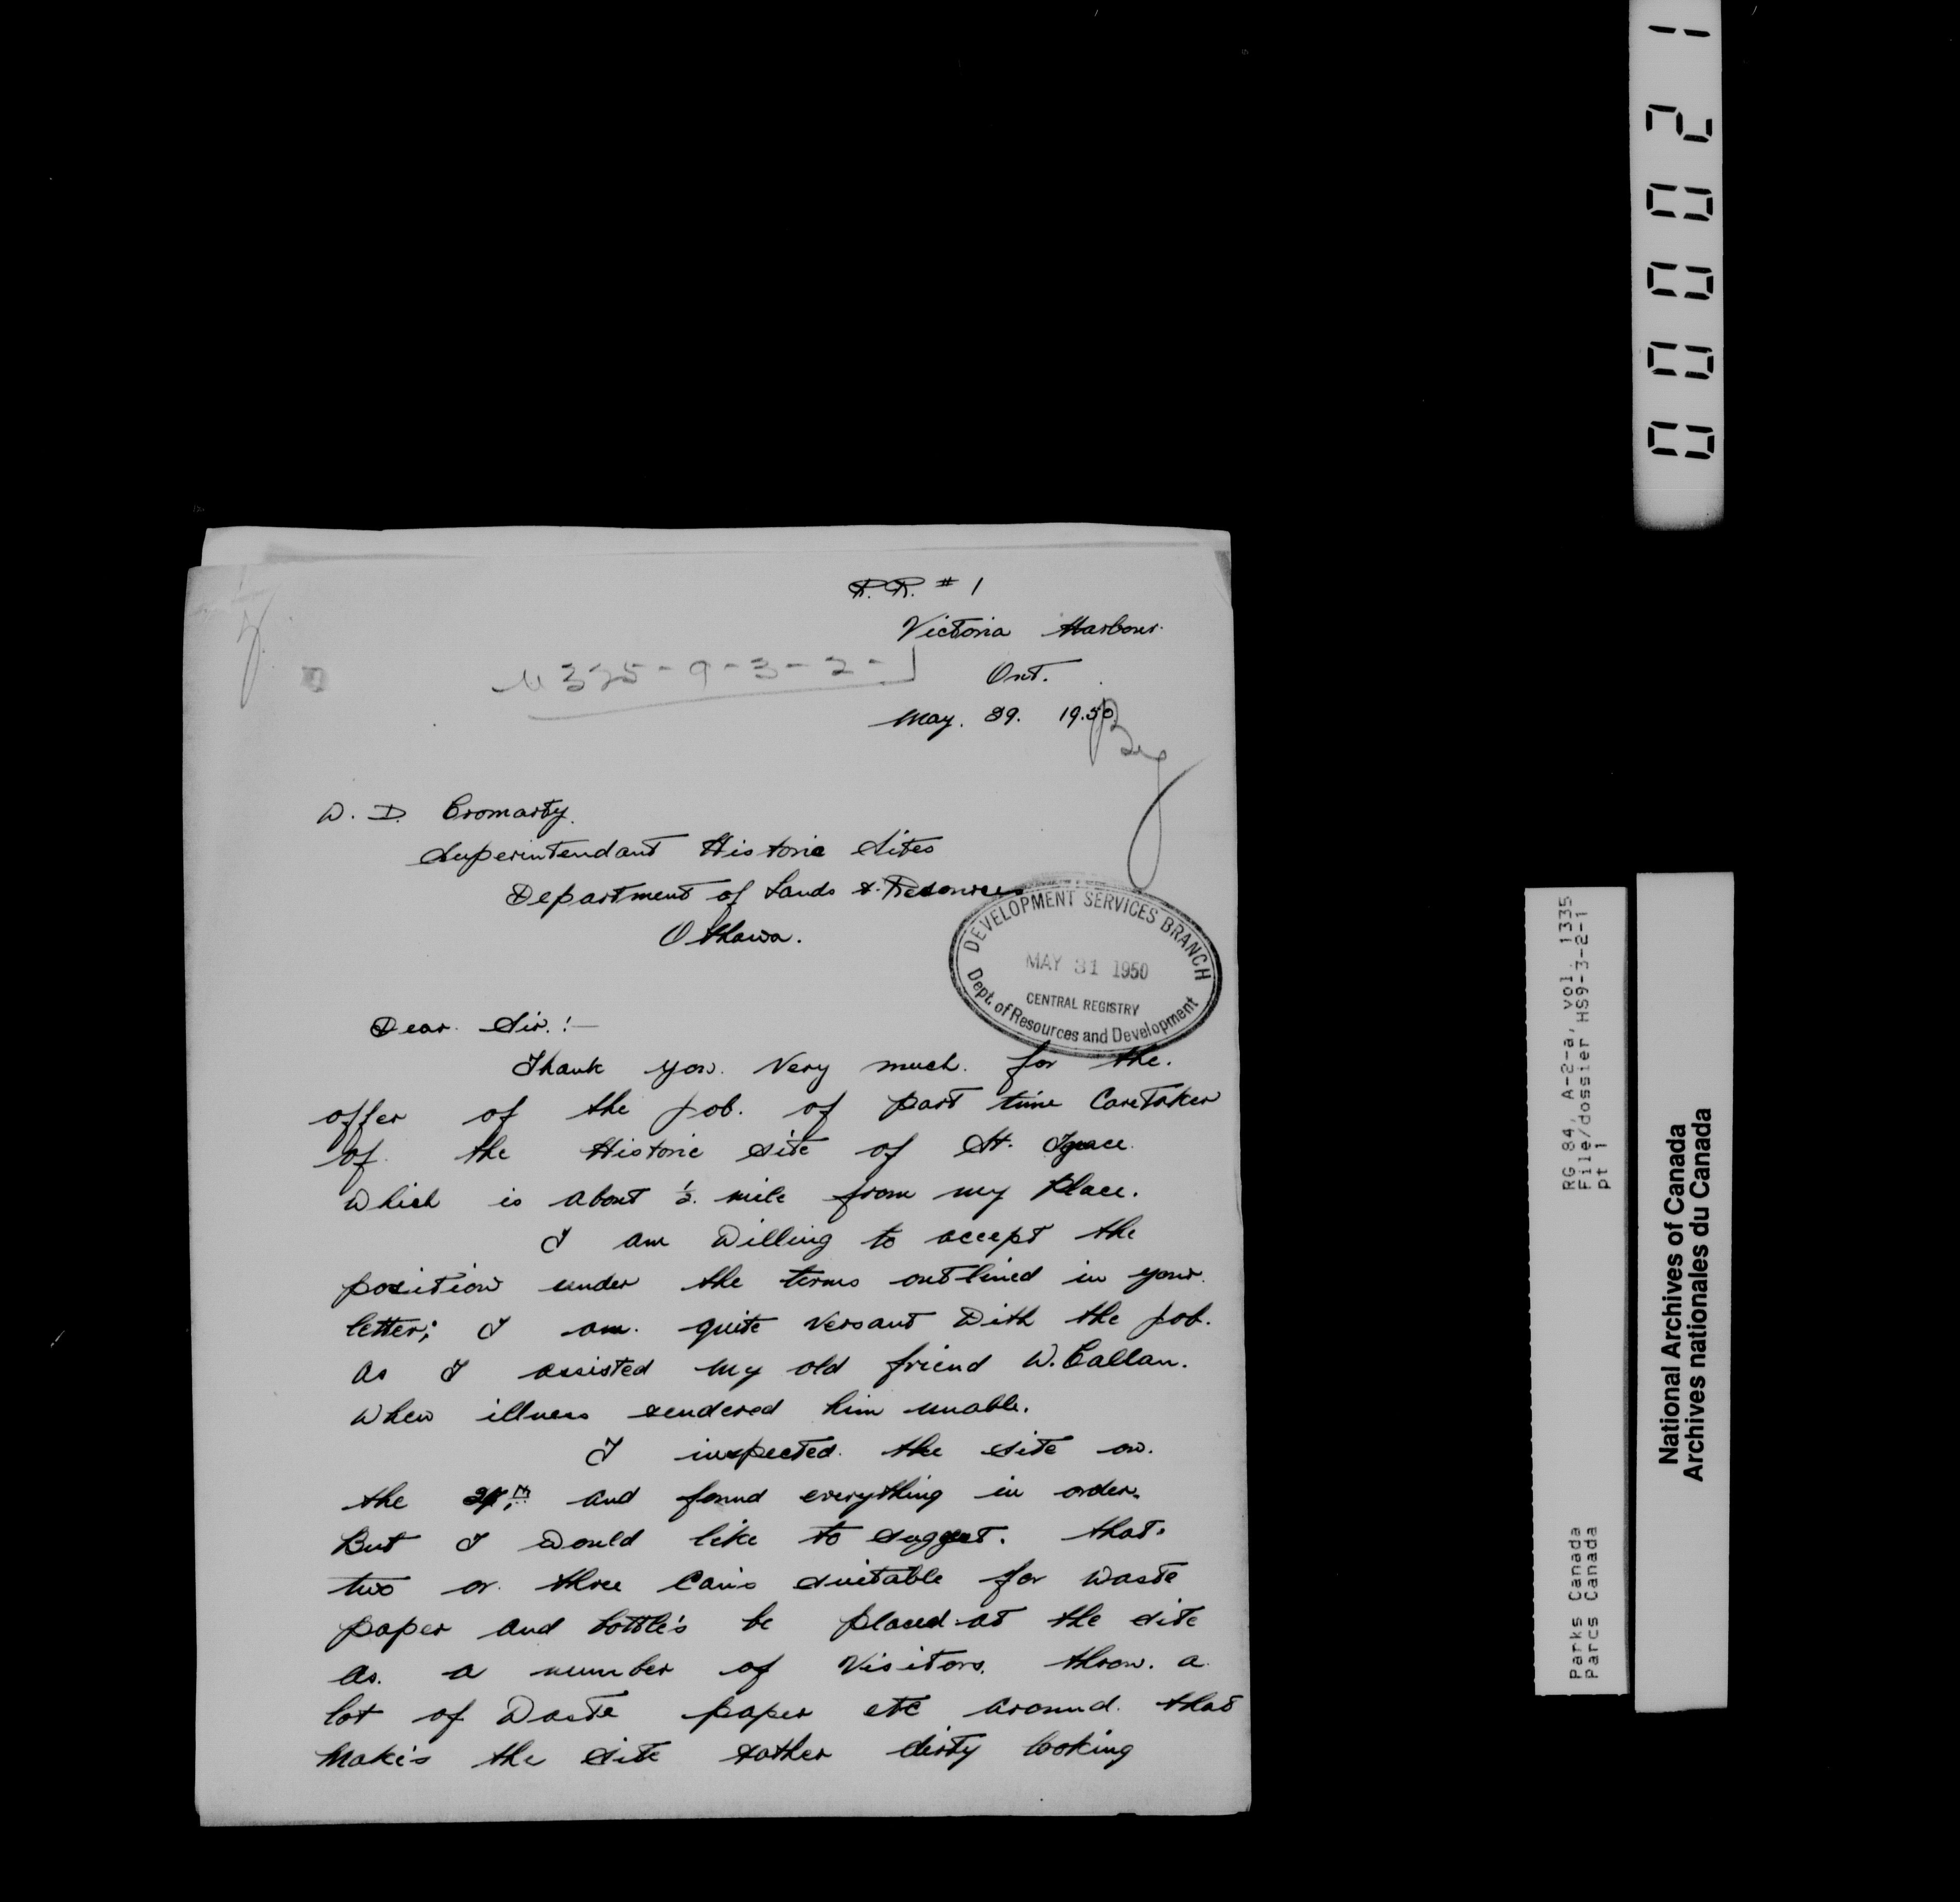 R.R. # 1
Victoria Harbour.
Ont.
May. 29. 19.50
U 325-9-3-2-1
W. D. Cromarty.
Superintendant Historic Sites
Department of Lands & Resources
Ottawa.
DEVELOPMENT SERVICES BRANCH
MAY 31 1950
CENTRAL REGISTRY
Dept. of Resources and Development
Dear. Sir. :—
Thank you. Very much. for the.
offer of the job. of part time Caretaker
of. the Historic site of St. Ignace.
Which is about ½. mile from my Place.
I am Willing to accept the
position under the terms outlined in your.
letter; I am. quite versant With the job.
as I assisted my old friend W. Callan.
When illness rendered him unable.
I inspected. the site on.
the and found everything in order.
But I Would like to suggest. that.
two or. three Can's suitable for Waste
paper and bottle's be placed at the site
as. a number of Visitors. throw. a.
lot of Waste paper etc around. that
Make's the site rather dirty looking
000021
RG 84, A-2-a, vol. 1335
File/dossier HS9-3-2-1
pt 1
Parks Canada
Parcs Canada
National Archives of Canada
Archives nationales du Canada